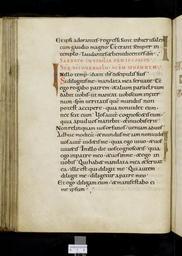 Et ipsi adorantes regressi sunt inhierusalem
cum gaudio magno. Et erant semper in
templo laudantes et benedicentes dm
Sabbato in vigilia
iohannem
illo temp dixit ihs discipulis suis
Si diligitis me mandata mea servate. Et
ego rogabo patrem et alium paraclitum
dabit vobis ut maneat vobiscum in aeter
num spm veritatis quem mundus non
potest accipere quia non videt eum
nec scit eum Vos autem cognoscetis eum
quia apud vos manebit et in vobis erit
Non relinquam vos orfanos veniam ad vos
Adhuc modicum et mundus me iam non videt
vos autem videtis me quia ego vivo et vos
vivetis In illo die vos cognoscetis quia
ego in patre meo et vos in me et ego in
vobis Qui habet mandata mea et servat
ea ille est qui diligit me Qui autem
diligit me diligetur a patre meo
Et ego diligam eum et manifestabo ei
me ipsum